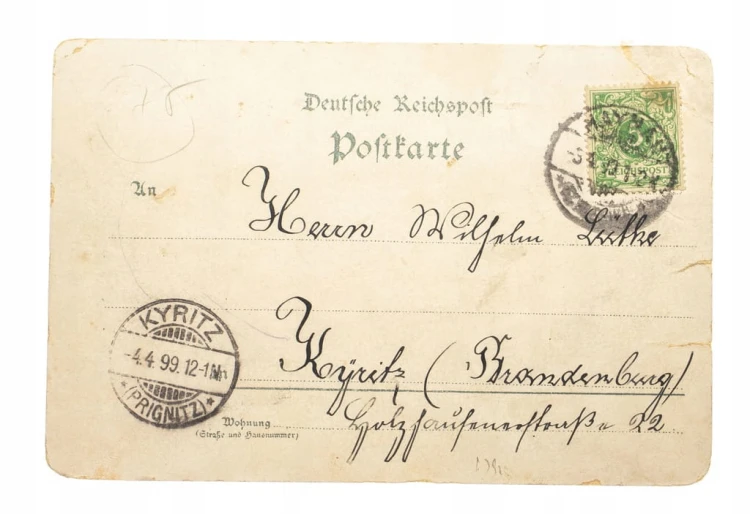 Deutsche Reichspost
Postkarte
5
REICHSPOST
An
Herrn Wilhelm
KYRITZ
-4.4.99.12-1N.
*(PRIGNITZ)*
Kÿritz (Brandenburg)
Wohnung
(Straße und Hausnummer)
Holzhausenerstraße 22